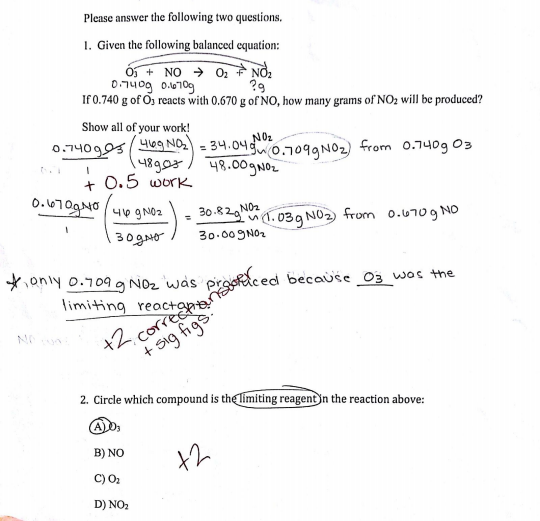 Please answer the following two questions.
1. Given the following balanced equation:
O3 + NO → O2 + NO2
0.740g 0.670g ?g
If 0.740 g of O3 reacts with 0.670 g of NO, how many grams of NO2 will be produced?
Show all of your work!
0.740g O3 / 1 (46g NO2 / 48g O3) = 34.04g NO2 / 48.00g NO2 ~ 0.709g NO2 from 0.740g O3
+ 0.5 work
0.670g NO / 1 (46g NO2 / 30g NO) = 30.82g NO2 / 30.00g NO2 ~ 1.03g NO2 from 0.670g NO
* only 0.709 g NO2 was produced because O3 was the
limiting reactant.
+2 correct answer
+ sig figs.
2. Circle which compound is the limiting reagent in the reaction above:
A) O3
B) NO
+2
C) O2
D) NO2